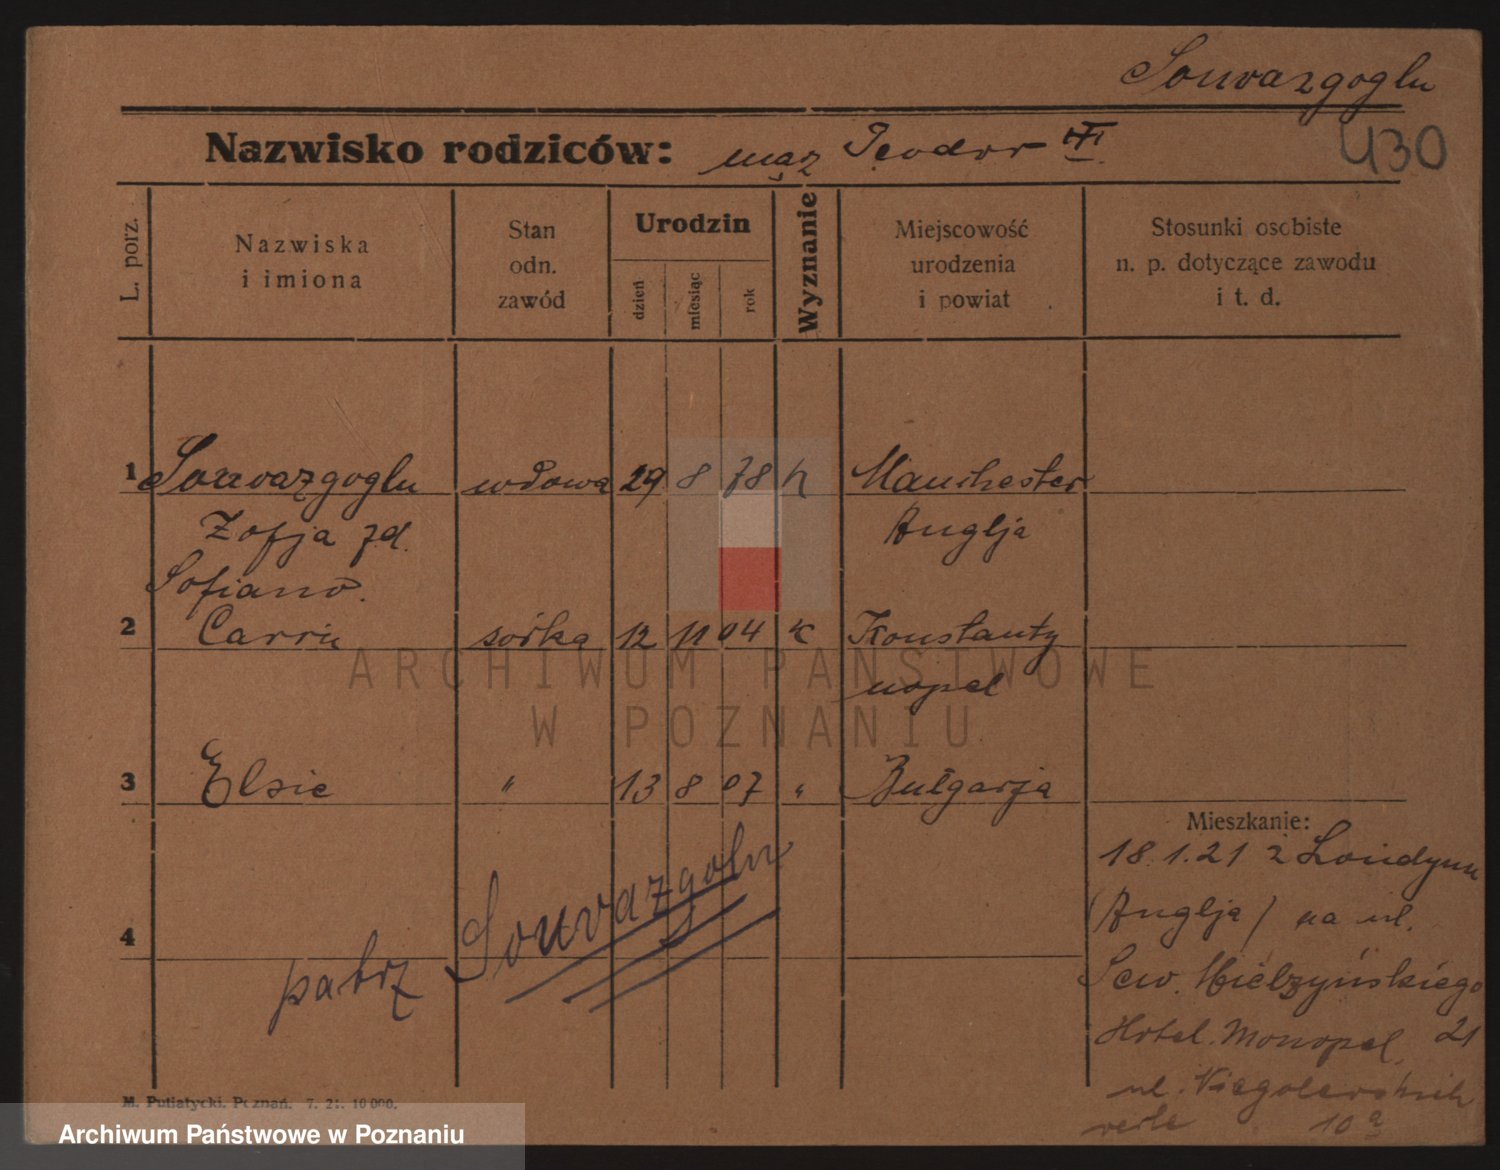 Souvazgoglu
Nazwisko rodziców: mąż Teodor III
430
L. porz.
Nazwiska
i imiona
Stan
odn.
zawód
Urodzin
dzień
miesiąc
rok
Wyznanie
Miejscowość
urodzenia
i powiat
Stosunki osobiste
n. p. dotyczące zawodu
i t. d.
1 Souvazgoglu wdowa 29 8 78 Manchester
Zofja Anglja
Sofiano.
2 Carrie 12 11 04 K Konstanty
nopel
3 Elsie " 13 8 07 " Bułgarja
4
patrz Souvazgolu
Mieszkanie:
18.1.21 z Londynu
(Anglja) na ul.
Sew. Mielzyńskiego
Hotel Monopol, 21
ul.
10a
M. Putiatycki. Poznań. 7. 21. 10 000.
ARCHIWUM PAŃSTWOWE
W POZNANIU
Archiwum Państwowe w Poznaniu